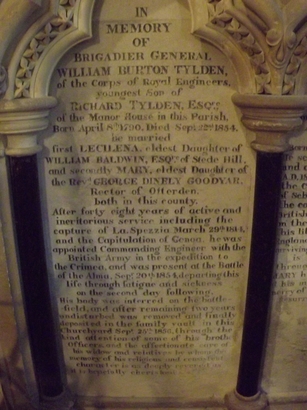 IN
MEMORY
OF
BRIGADIER GENERAL
WILLIAM BURTON TYLDEN,
of the Corps of Royal Engineers,
youngest Son of
RICHARD TYLDEN, ESQRE
of the Manor House in this Parish,
Born April 8th 1790, Died Sepr 22nd 1854,
he married
first LECILENA, eldest Daughter of
WILLIAM BALDWIN, ESQRE of Stede Hill,
and secondly MARY, eldest Daughter of
the Revd GEORGE DINELY GOODYAR,
Rector of Otterden,
both in this county.
After forty eight years of active and
meritorious service including the
capture of La Spezzia March 29th 1814,
and the Capitulation of Genoa, he was
appointed Commanding Engineer with the
British Army in the expedition to
the Crimea, and was present at the Battle
of the Alma, Sepr 20th 1854, departing this
life through fatigue and sickness
on the second day following.
His body was interred on the battle
field, and after remaining two years
undisturbed was removed and finally
deposited in the family vault in this
Church and Sepr 25th through the
kind attention of some of his brother
Officers, and the affectionate care of
his widow and relatives by whom the
memory of his religious and
character is